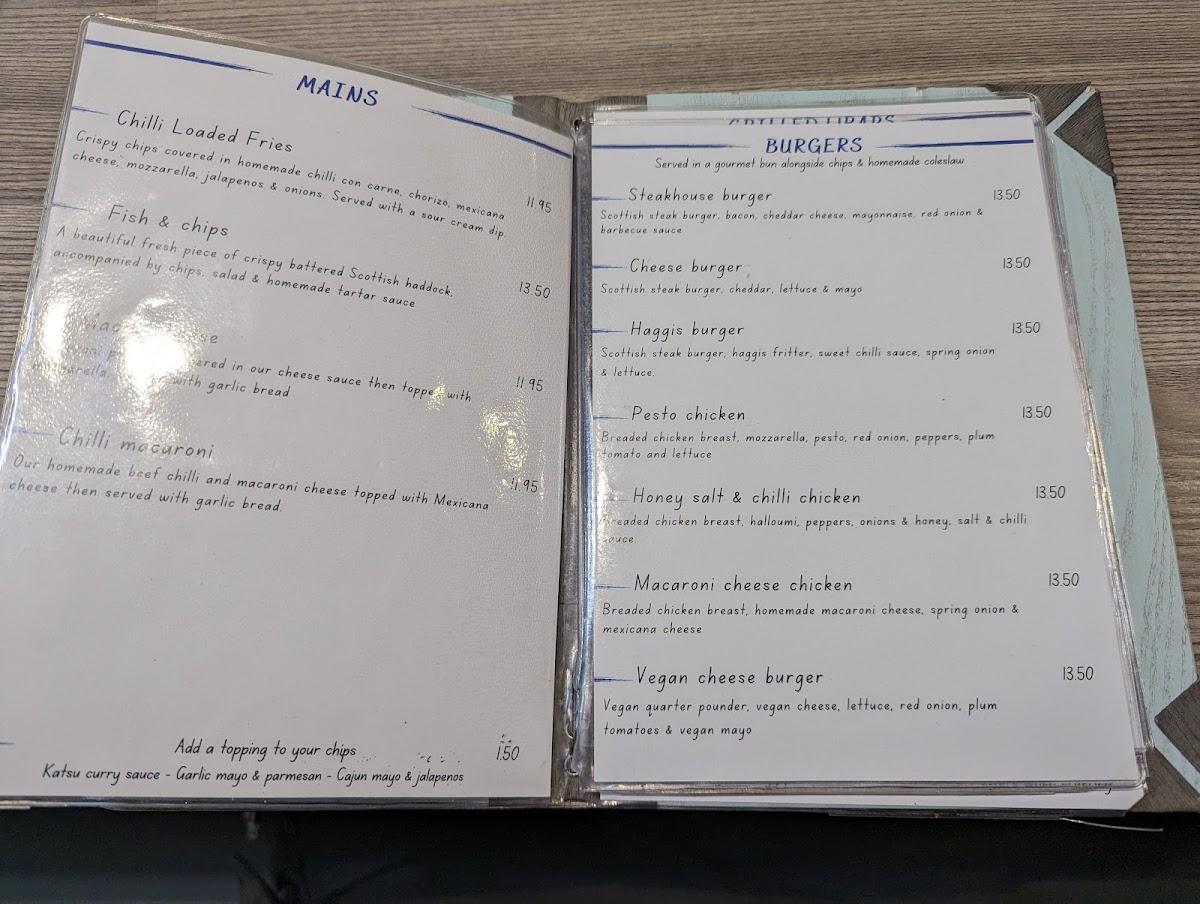 MAINS
Chilli Loaded Fries
Crispy chips covered in homemade chilli con carne, chorizo, mexicana
cheese, mozzarella, jalapenos & onions. Served with a sour cream dip
11.95
Fish & chips
A beautiful fresh piece of crispy battered Scottish haddock,
accompanied by chips, salad & homemade tartar sauce
13.50
covered in our cheese sauce then topped with
with garlic bread
11.95
Chilli macaroni
Our homemade beef chilli and macaroni cheese topped with Mexicana
cheese then served with garlic bread.
11.95
Add a topping to your chips
1.50
Katsu curry sauce - Garlic mayo & parmesan - Cajun mayo & jalapenos
GRILLED WRAPS
BURGERS
Served in a gourmet bun alongside chips & homemade coleslaw
Steakhouse burger 13.50
Scottish steak burger, bacon, cheddar cheese, mayonnaise, red onion &
barbecue sauce
Cheese burger 13.50
Scottish steak burger, cheddar, lettuce & mayo
Haggis burger 13.50
Scottish steak burger, haggis fritter, sweet chilli sauce, spring onion
& lettuce.
Pesto chicken 13.50
Breaded chicken breast, mozzarella, pesto, red onion, peppers, plum
tomato and lettuce
Honey salt & chilli chicken 13.50
Breaded chicken breast, halloumi, peppers, onions & honey, salt & chilli
sauce.
Macaroni cheese chicken 13.50
Breaded chicken breast, homemade macaroni cheese, spring onion &
mexicana cheese
Vegan cheese burger 13.50
Vegan quarter pounder, vegan cheese, lettuce, red onion, plum
tomatoes & vegan mayo